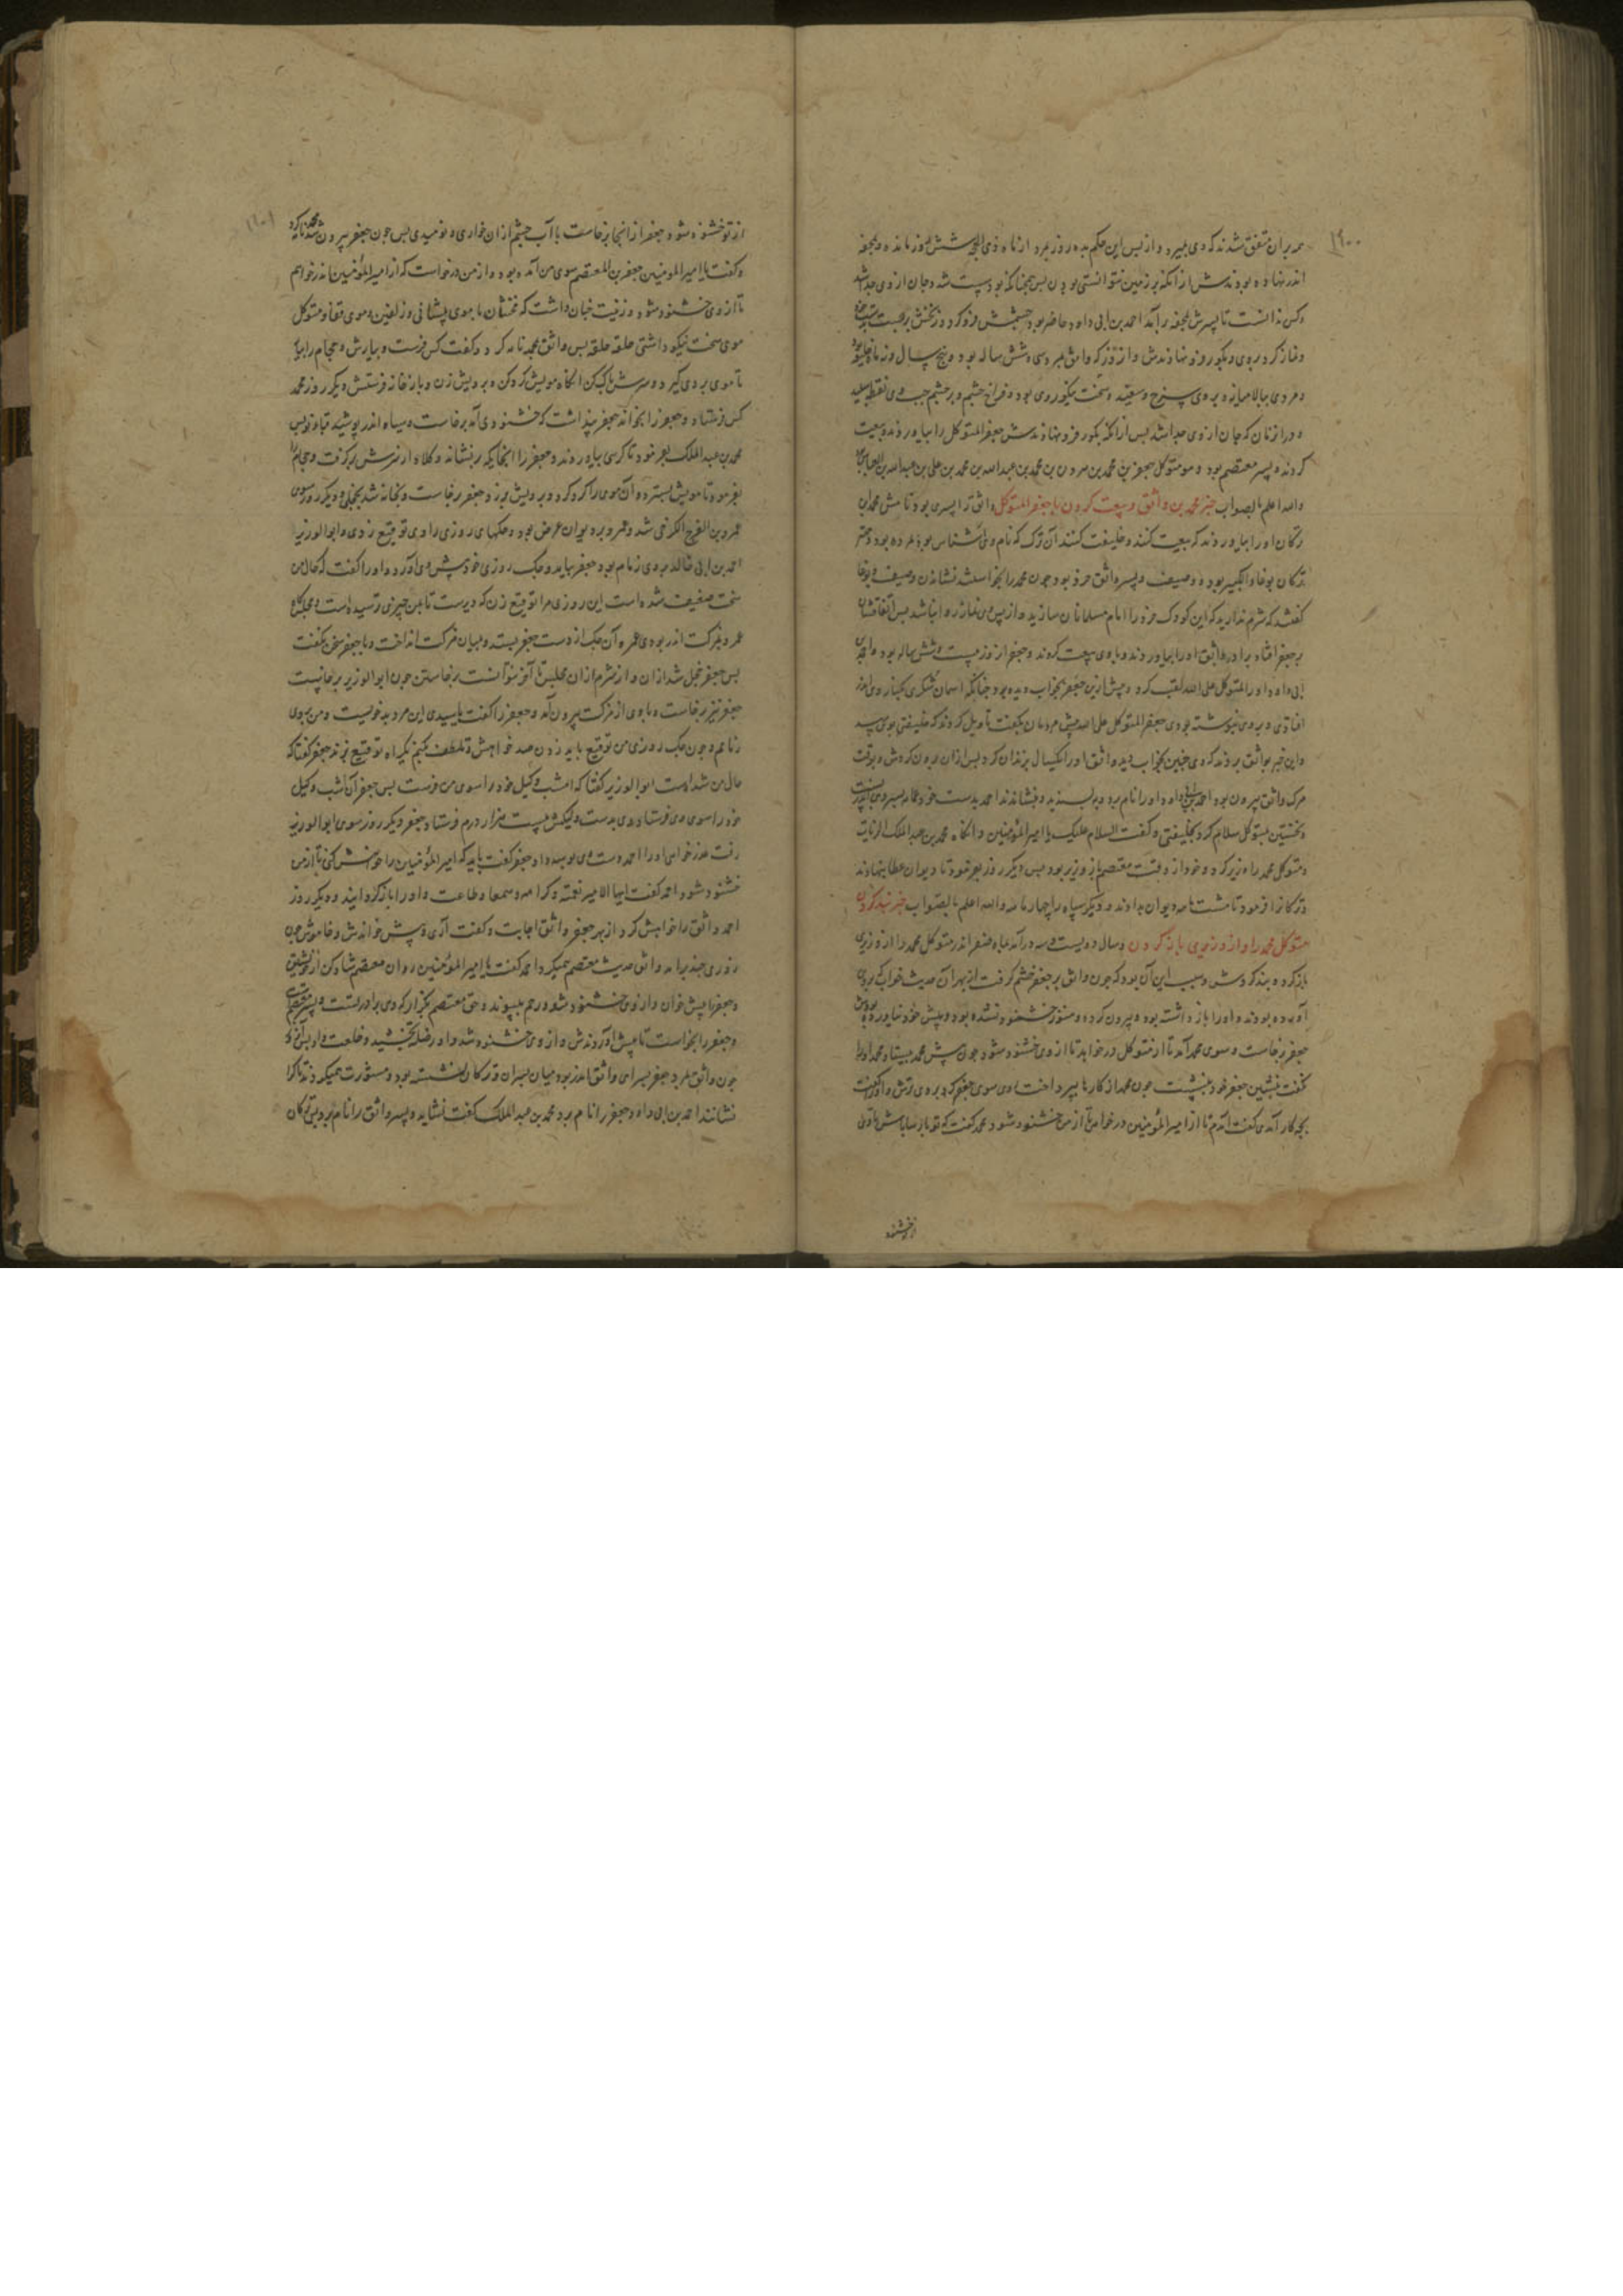 ۱۹۰۰
مدبران متفق شدند که وی بمیرد و از پس این حکم بده روز بمرد از ماه ذی الحجه شش روز مانده و بمحفه
اندر نهاده بودندش از انکه بر زمین نتوانستی بودن پس همچنانکه بود پست شد و جان از وی جدا شد
و کس ندانست تا بسرش بمحفه برآمد احمد بن ابی داود حاضر بود چشمش فرو کرد و زنخش بر بست
و نماز کرد بر وی و بکور فرو نهادندش و از روز که واثق بمرد سی و شش ساله بود و پنج سال و نه ماه خلیفه بود
و مردی ببالا میانه و بروی سرخ و سفید و سخت نیکو روی بود و فراخ چشم و بر چشم چپ وی نقطه سپید
و در ان زمان که جان از وی جدا شد پس از انکه بکور فرو نهادندش جعفر المتوکل را بیاوردند و بیعت
کردند و پسر معتصم بود و هو متوکل جعفر بن محمد بن هرون بن محمد بن عبدالله بن محمد بن علی بن عبدالله بن العباس
والله اعلم بالصواب خبر محمد بن واثق و بیعت کردن با جعفر المتوکل واثق را پسری بود نامش محمد بن
ترکان او را بیاوردند که بیعت کنند و خلیفت کنند آن ترک که نام وی اشناس بود مرده بود و مهتر
ترکان بوغاء الکبیر بود و وصیف و پسر واثق خرد بود چون محمد را بخواستند نشاندن وصیف و بوغا
گفتند که شرم ندارید که این کودک خرد را امام مسلمانان سازید و از پس وی نماز روا نباشد پس اتفاقشان
بر جعفر افتاد برادر واثق او را بیاوردند و با وی بیعت کردند و جعفر از روز بیست و شش ساله بود و احمد بن
ابی داود او را المتوکل علی الله لقب کرد و پیش ازین جعفر بخواب دیده بود چنانکه از آسمان شکری بکنار وی اندر
افتادی و بر وی نبوشته بودی جعفر المتوکل علی الله پیش مردمان بگفت تأویل کردند که خلیفتی بوی رسد
و این خبر بواثق بردند که وی چنین بخواب دید واثق او را یکسال بزندان کرد پس از ان بیرون کردش و بوقت
مرک واثق بیرون بود احمد بن ابی داود او را نام برد و پسندید و بنشاندند احمد بدست خود عمامه بسر وی اندر بست
و نخستین بمتوکل سلام کرد بخلیفتی و گفت السلام علیک یا امیر المؤمنین و انگاه محمد بن عبدالملک الزیات
و متوکل محمد را وزیر کرد و خود از وقت معتصم باز وزیر بود پس دیگر روز بفرمود تا دیوان عطا بنهادند
و ترکانرا فرمود تا هشت ماهه دیوان بدادند و دیگر سپاه را چهار ماهه والله اعلم بالصواب خبر بند کردن
متوکل محمد را و از وزیری باز کردن و سال دویست و سه درآمد بماه صفر اندر متوکل محمد را از وزیری
باز کرد و بند کردش و سبب این آن بود که چون واثق بر جعفر خشم گرفت از بهر آن حدیث خواب که بر وی
آورده بودند و او را باز داشته بود و بیرون کرده و هنوز خشنود نشده بود و پیش خود نیاورده بودش
جعفر برخاست و سوی محمد آمد تا از متوکل درخواهد تا از وی خشنود شود چون پیش محمد بیستاد محمد او را
گفت بنشین جعفر خود بنشست چون محمد از کارها بپرداخت اوی سوی جعفر کرد بروی ترش و او را گفت
بچه کار آمدی گفت آمدم تا از امیر المؤمنین درخواهی تا از من خشنود شود محمد گفت که تو باز بسامان باش تا وی
از تو خشنود
۱۹۰۱
از تو خشنود شود جعفر از انجا برخاست با آب چشم از ان خواری و نومیدی پس چون جعفر بیرون شد محمد نامه کرد
و گفت یا امیر المومنین جعفر بن المعتصم سوی من آمده بود و از من درخواست که از امیر المؤمنین اندر خواهم
تا از وی خشنود شود و زینت چنان داشت که مخنثان با موی پیشانی و زلفین و موی قفا و متوکل
موی سخت نیکو داشتی حلقه حلقه پس واثق محمد نامه کرد و گفت کس فرست و بیارش و حجام را بیار
تا موی بر وی گیرد و سرش پاک کن انگاه مویش گرد کن و بر رویش زن و باز خانه فرستش دیگر روز محمد
کس فرستاد و جعفر را بخواند جعفر پنداشت که خشنودی آمد برخاست و سیاه اندر پوشید قبا و نو پس
محمد بن عبدالملک بفرمود تا کرسی بیاوردند و جعفر را انجایگه بنشاند و کلاه از سرش برگرفت و حجام را
بفرمود تا مویش بسترد و آن موی را گرد کرد و بر رویش بزد و جعفر برخاست و بخانه شد بخجلی و دیگر روز سوی
عمرو بن الفرج الکرخی شد و عمرو بر دیوان عرض بود و چکهای روزی را وی توقیع زدی و ابوالوزیر
احمد بن ابی خالد بر وی زمام بود جعفر بیامد و چک روزی خود پیش وی آورد و او را گفت که حال من
سخت ضعیف شده است این روزی مرا توقیع زن که دیرست تا بمن چیزی نرسیده است و بمجلسگاه
عمرو بمزکت اندر بودی عمرو آن چک از دست جعفر بستد و بمیان مزکت انداخت و با جعفر سخن نگفت
پس جعفر خجل شد از ان و از شرم از ان مجلس تا آخر نتوانست برخاستن چون ابوالوزیر برخاست
جعفر نیز برخاست و با وی از مزکت بیرون آمد و جعفر را گفت یا سیدی این مرد بدخوییست و من بر وی
زمامم و چون چک روزی من توقیع باید زدن صد خواهش و تلطف بکنم یکراه توقیع نزند جعفر گفتا که
حال من شد است ابوالوزیر گفتا که امشب وکیل خود را سوی من فرست پس جعفر آن شب وکیل
خود را سوی وی فرستاد وی بدست وکیلش بیست هزار درم فرستاد جعفر دیگر روز سوی ابوالوزیر
رفت عذر خواهی او را احمد دست وی بوسه داد جعفر گفت باید که امیر المؤمنین را خواهش کنی تا از من
خشنود شود احمد گفت ایها الامیر نعمة و کرامه و سمعا و طاعت و او را باز گردانید و دیگر روز
احمد واثق را خواهش کرد از بهر جعفر واثق اجابت و گفت آری پیش خوانمش و خاموش چون
روزی چند برآمد واثق حدیث معتصم همیکرد احمد گفت یا امیر المؤمنین روان معتصم شاد کن از خویشتن
و جعفر را پیش خوان و از وی خشنود شو و رحم بپیوند و حق معتصم بگزار که وی برادر تست و پسر معتصم
و جعفر را بخواست تا پیش آوردندش و از وی خشنود شد و او را صله بخشید و خلعت داد پس آنکه
چون واثق بمرد جعفر بسرای واثق اندر بود میان پسران و ترکان بنشسته بود و مشورت همیکردند تا کرا
نشانند احمد بن ابی داود جعفر را نام برد محمد بن عبدالملک گفت نشاید و پسر واثق را نام برد پس ترکان